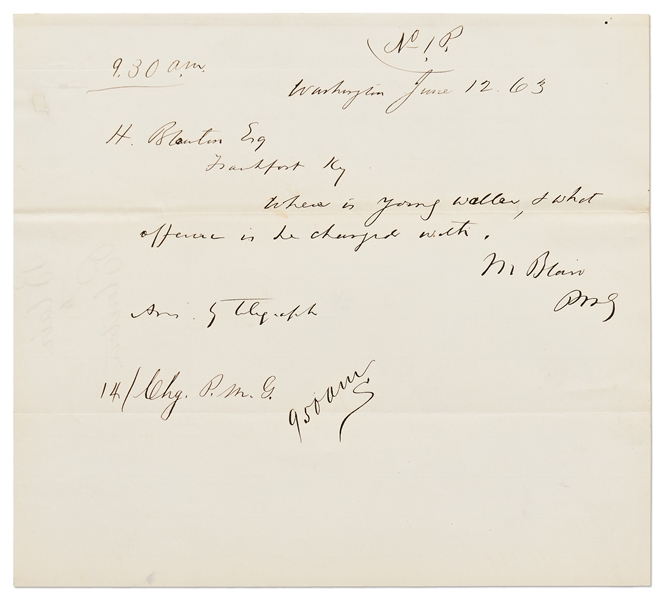 No 1 P.
9.30 a.m.
Washington June 12. 63
H. Blanton Esq
Frankfort Ky
Where is young Waller, & what
offence is he charged with.
M Blair
PMG
Ans. by telegraph
14/ Chg. P. M. G.
950 am